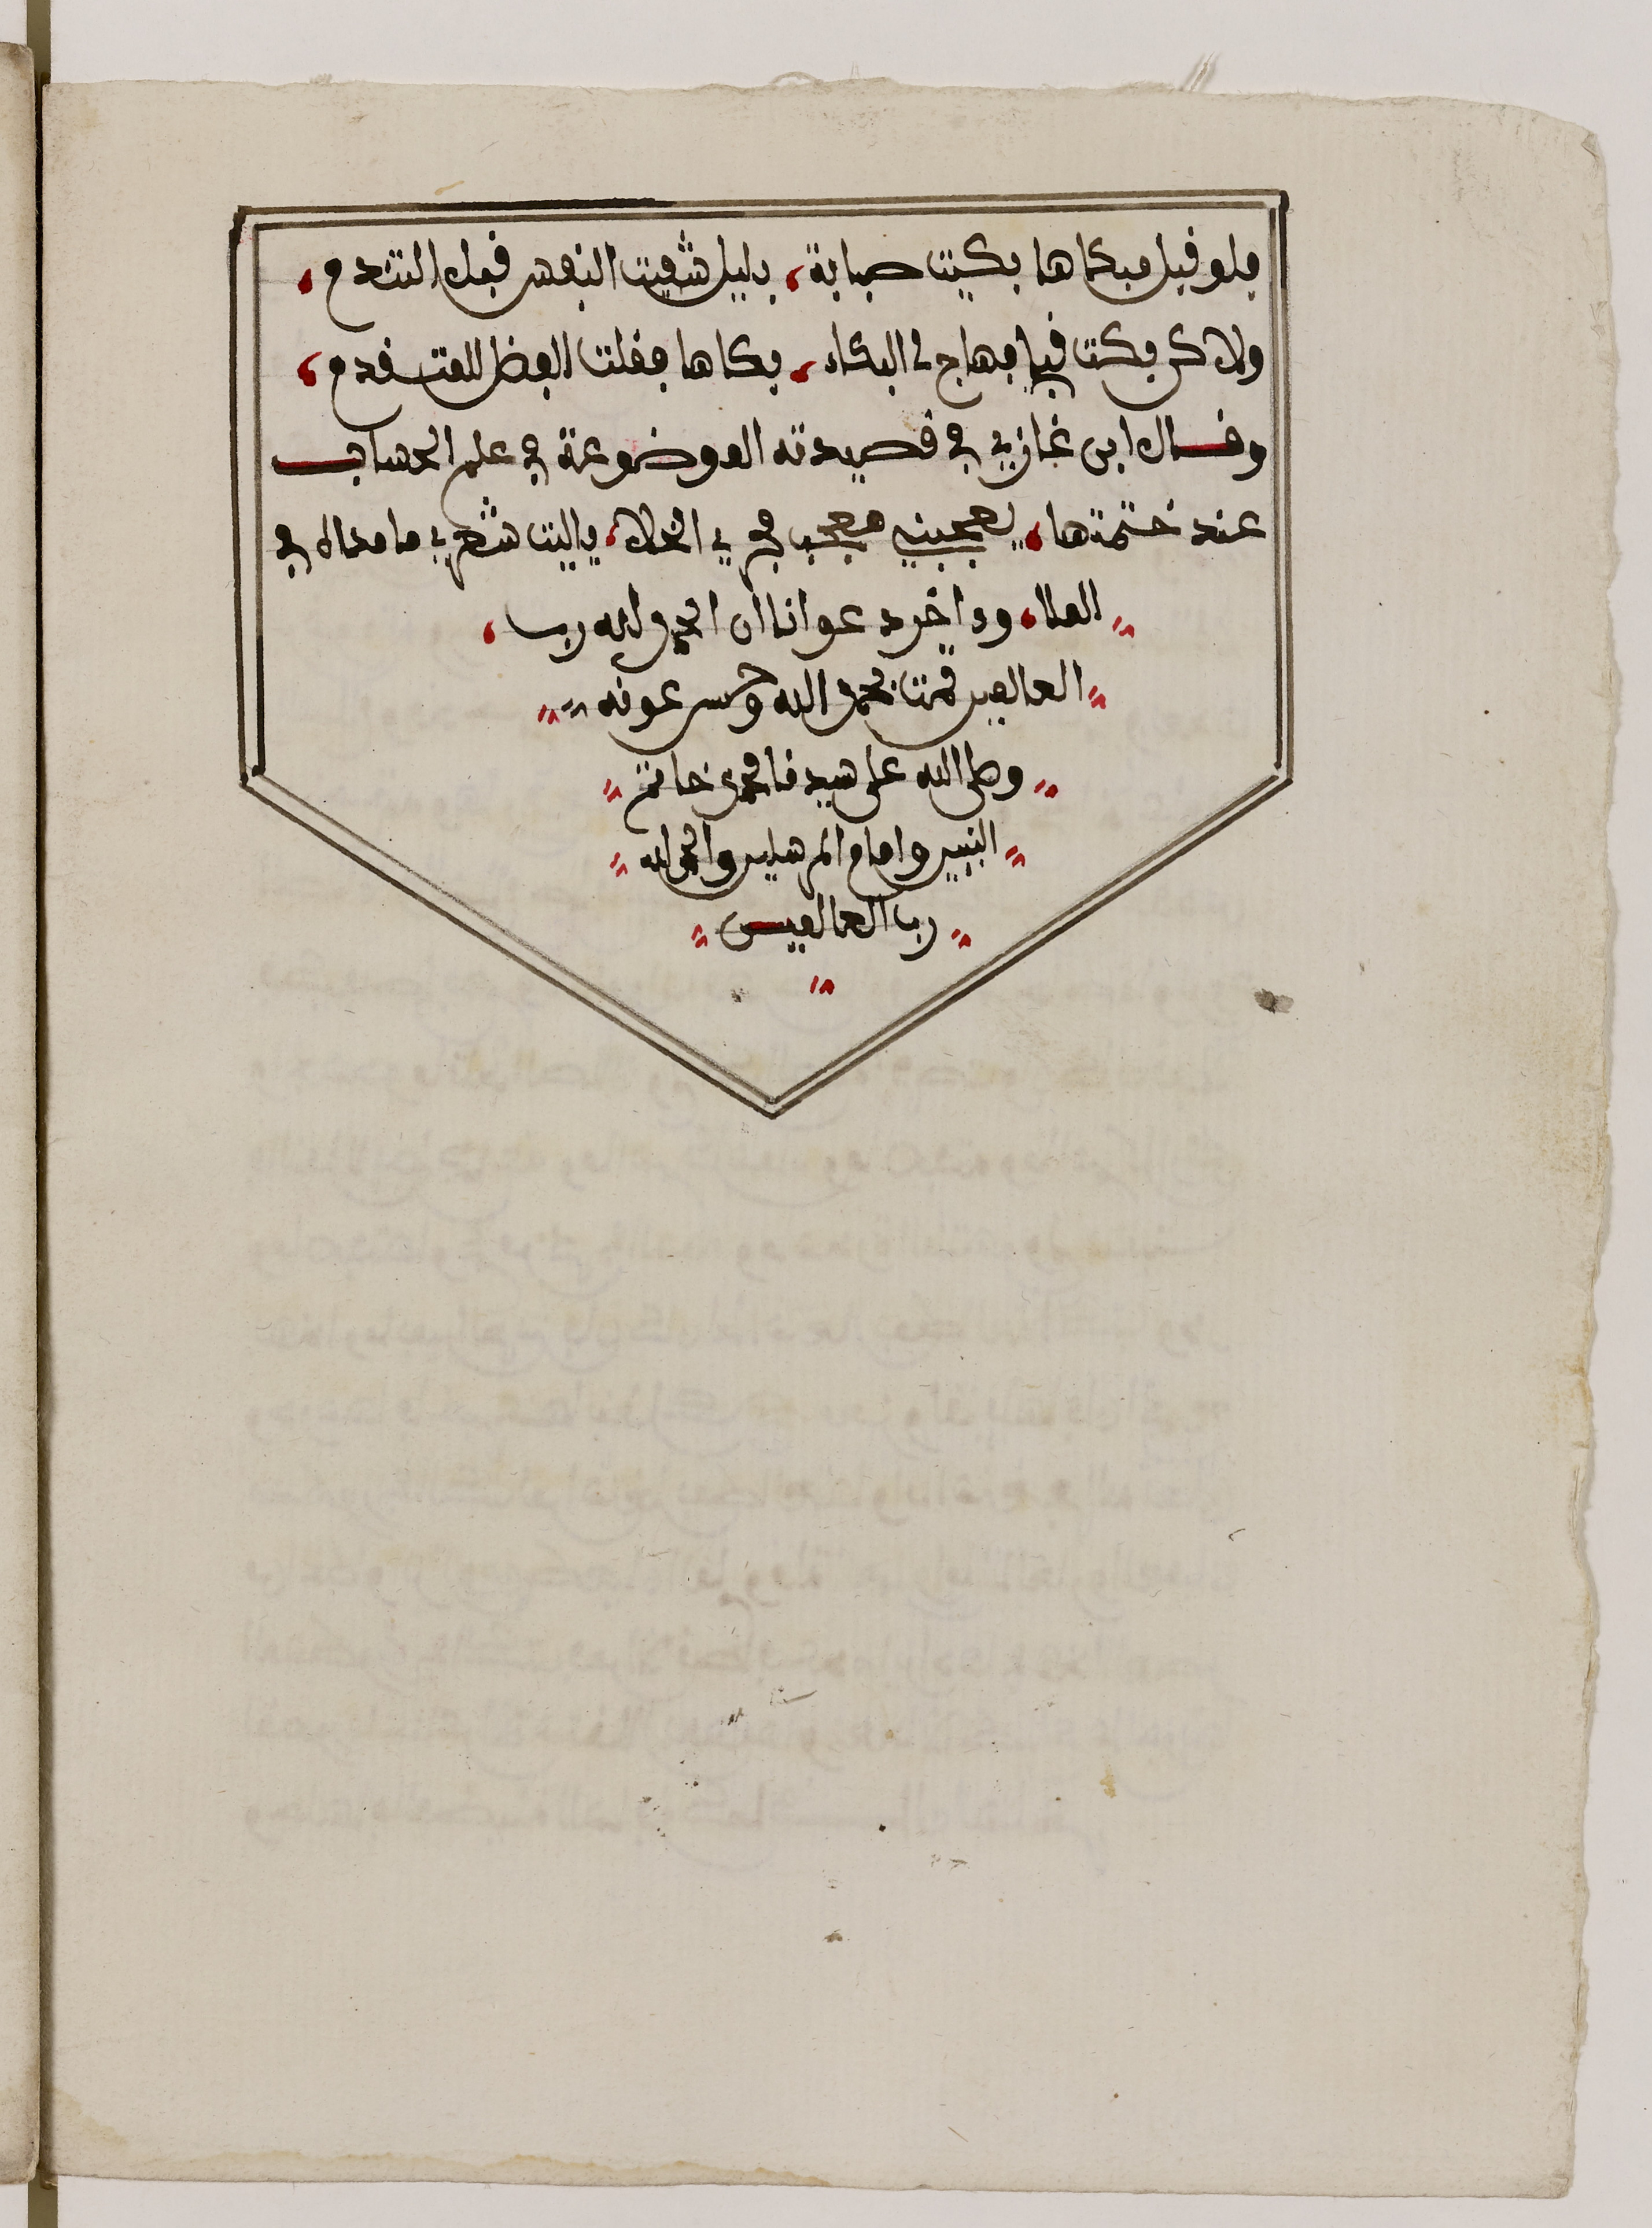 فلو قبل مبكاها بكيت صبابة، بليل شفيت النفس قبل التندم،
ولاكن بكت قبلي فهاج لي البكاء، بكاها فقلت الفضل للمتقدم،
وقال ابن غازي في قصيدته الموضوعة في علم الحساب
عند ختمتها، يعجبني معجب في في الخلا، يا ليت شعري ما مقاله في
الملا، وءاخر دعوانا ان الحمد لله رب،
العالمين تمت بحمد الله وحسن عونه
وصلى الله على سيدنا محمد خاتم
النبيين وامام المرسلين والحمد لله
رب العالمين